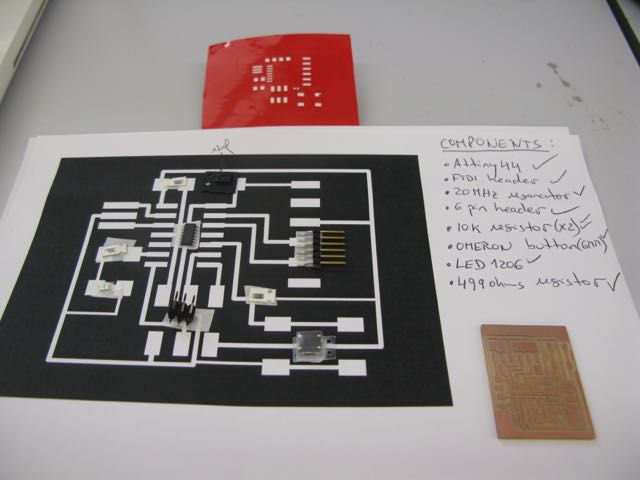 COMPONENTS:
• Attiny44 ✓
• FTDI header ✓
• 20MHz resonator ✓
• 6 pin header ✓
• 10K resistor (x2) ✓
• OMERON button (6mm) ✓
• LED 1206 ✓
• 499 ohms resistor ✓